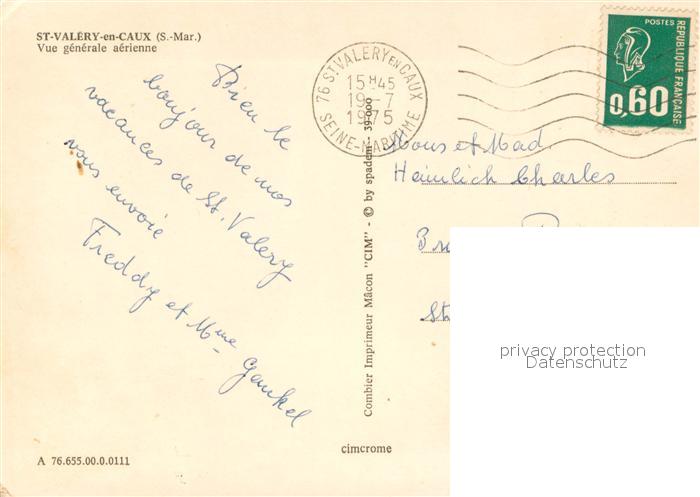 ST-VALÉRY-en-CAUX (S.-Mar.)
Vue générale aérienne
Bien le
bonjour de nos
vacances de St. Valery
vous envoie
Freddy et Mme Gankel
76 ST VALERY EN CAUX
15 H 45
19-7
1975
SEINE-MARITIME
POSTES
REPUBLIQUE FRANÇAISE
0,60
Mons et Mad.
Heinlich Charles
privacy protection
Datenschutz
Combier Imprimeur Mâcon "CIM" - © by spadem - 39.000
cimcrome
A 76.655.00.0.0111